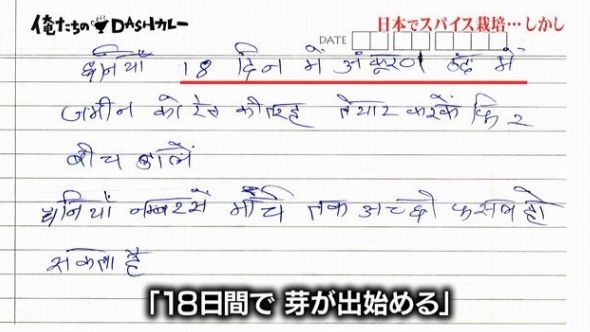 俺たちのDASHカレー
日本でスパイス栽培…しかし
DATE
धनियाँ 18 दिन में अंकूरण ठंढ में
जमीन को रेत की तरह तैयार करकें फिर
बीच डालें
धनियाँ नम्बर सें मार्च तक अच्छी फसल हो
सकता है
「18日間で 芽が出始める」